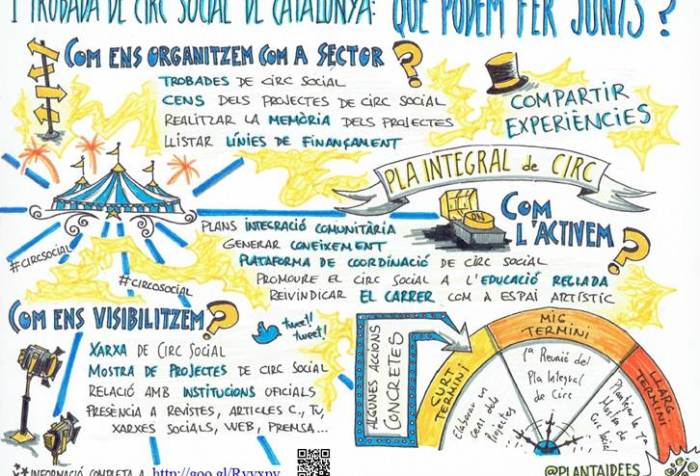 I TROBADA DE CIRC SOCIAL DE CATALUNYA: QUÈ PODEM FER JUNTS?
COM ENS ORGANITZEM COM A SECTOR ?
TROBADES DE CIRC SOCIAL
CENS DELS PROJECTES DE CIRC SOCIAL
REALITZAR LA MEMÒRIA DELS PROJECTES
LLISTAR LÍNIES DE FINANÇAMENT
COMPARTIR
EXPERIÈNCIES
PLA INTEGRAL de CIRC
COM
L'ACTIVEM ?
ON
PLANS INTEGRACIÓ COMUNITÀRIA
GENERAR CONEIXEMENT
PLATAFORMA DE COORDINACIÓ DE CIRC SOCIAL
PROMOURE EL CIRC SOCIAL A L'EDUCACIÓ REGLADA
REIVINDICAR EL CARRER COM A ESPAI ARTÍSTIC
#CIRCSOCIAL
#CIRCOSOCIAL
COM ENS VISIBILITZEM?
tweet!
tweet!
XARXA DE CIRC SOCIAL
MOSTRA DE PROJECTES DE CIRC SOCIAL
RELACIÓ AMB INSTITUCIONS OFICIALS
PRESÈNCIA A REVISTES, ARTICLES C., TV,
XARXES SOCIALS, WEB, PREMSA...
ALGUNES ACCIONS
CONCRETES
CURT
TERMINI
Elaborar un
cens dels
Projectes
MIG
TERMINI
1ª Reunió del
Pla Integral
de Circ
LLARG
TERMINI
Planificar la 1ª
Mostra de
Circ Social
*INFORMACIÓ COMPLETA A http://goo.gl/Ryyxpv
@PLANTAIDEES